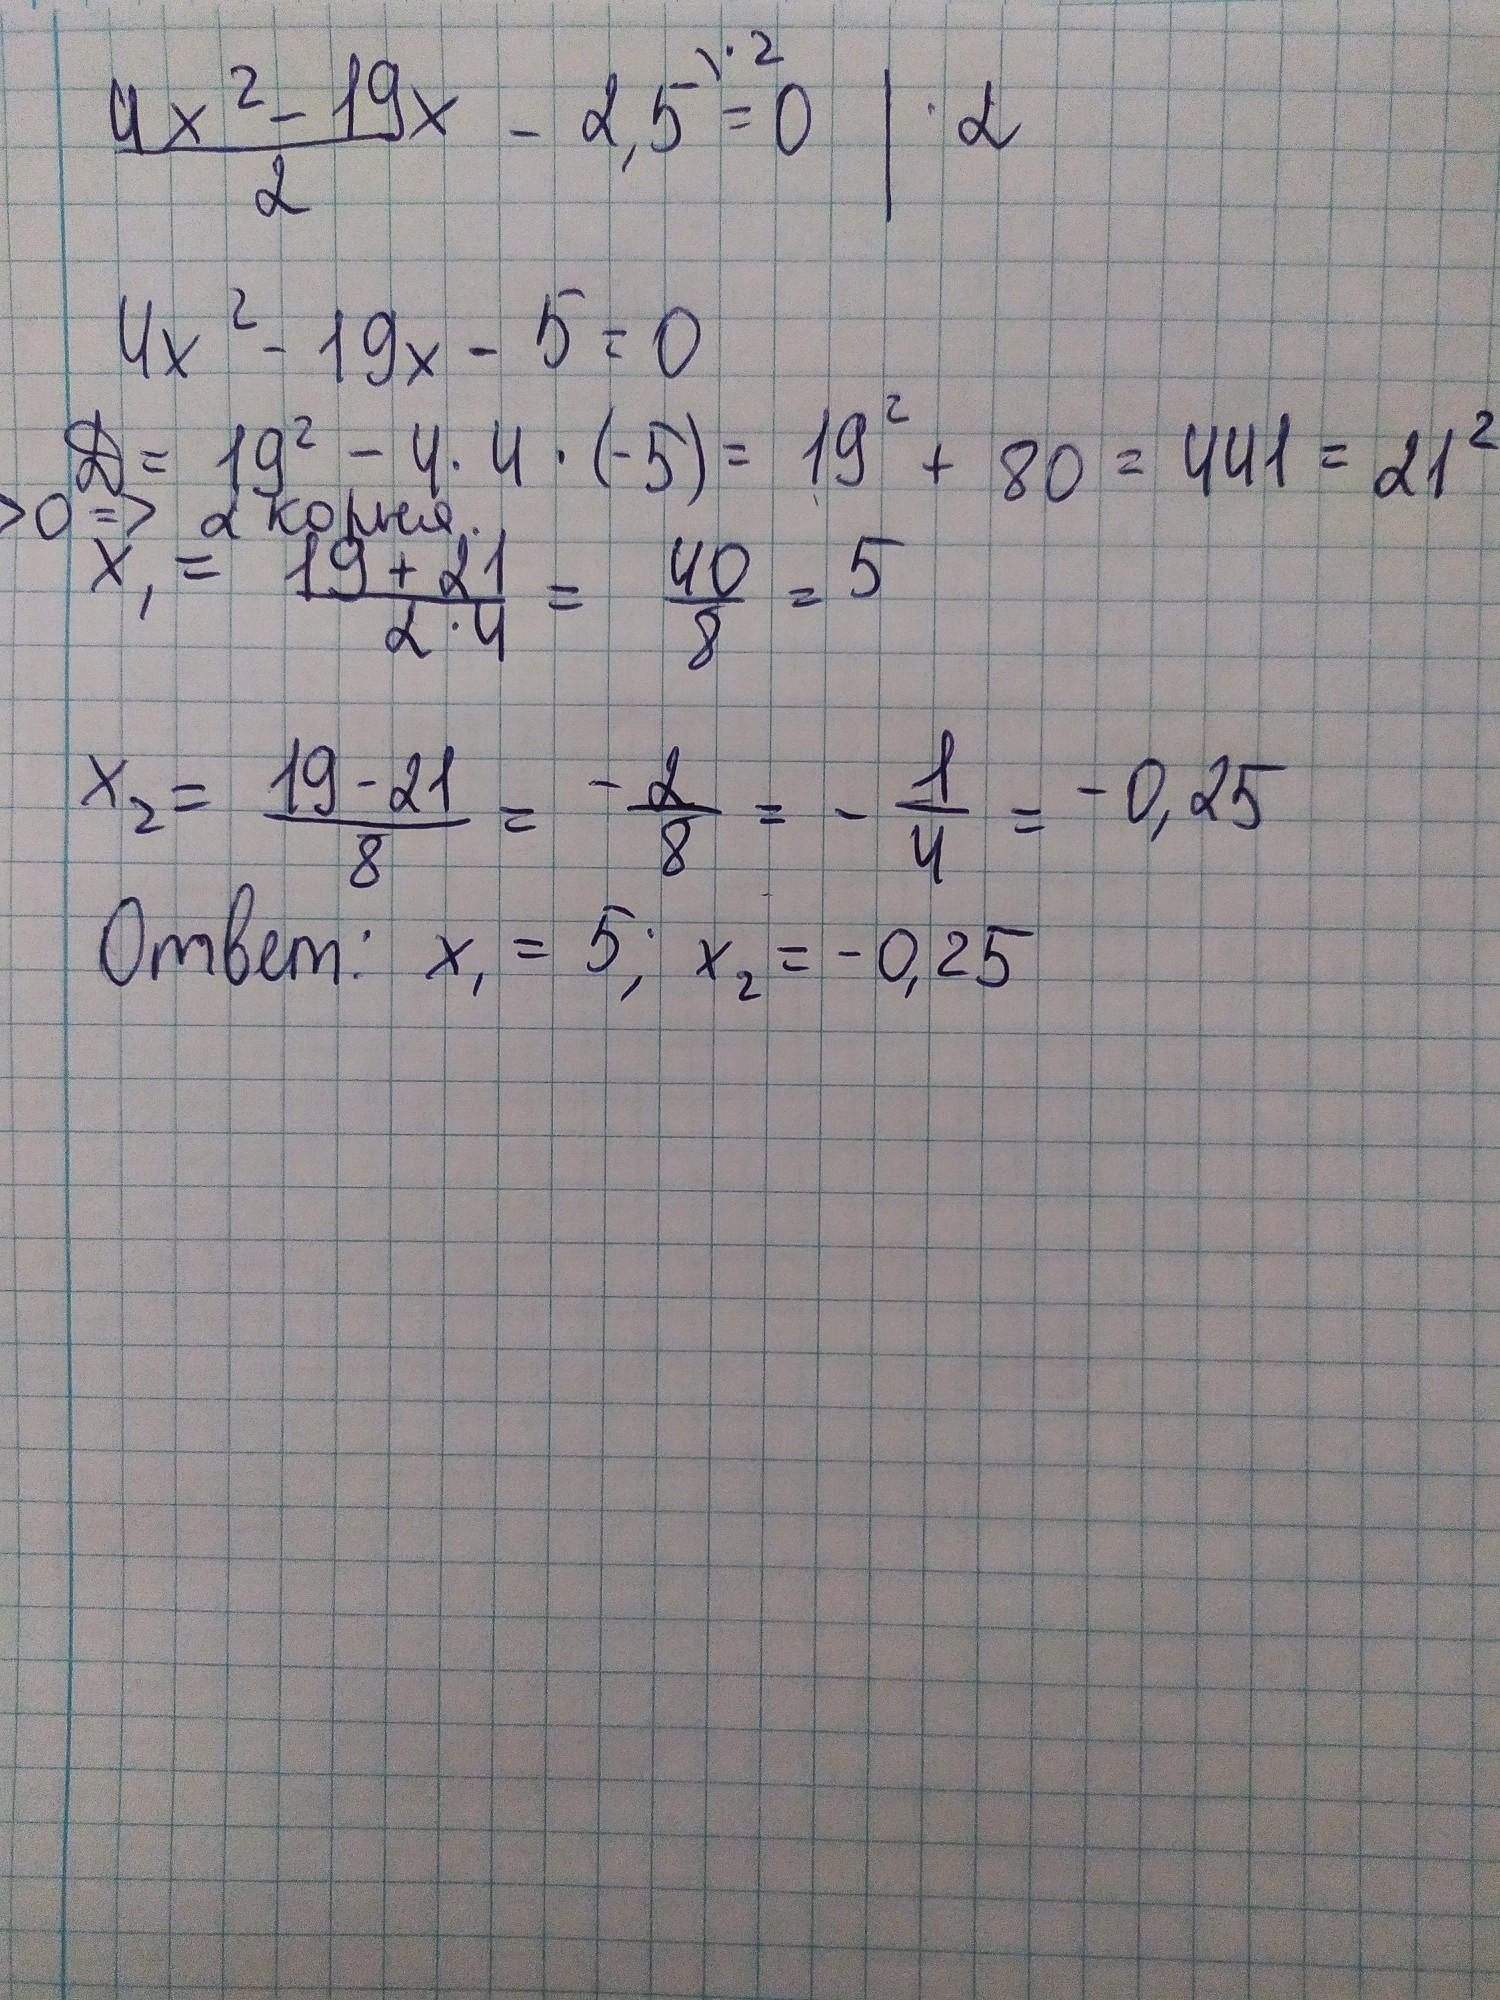 (4x² - 19x)/2 - 2,5\·2 = 0 | · 2
4x² - 19x - 5 = 0
D = 19² - 4 · 4 · (-5) = 19² + 80 = 441 = 21²
>0 => 2 корня.
x₁ = (19 + 21)/(2 · 4) = 40/8 = 5
x₂ = (19 - 21)/8 = -2/8 = - 1/4 = -0,25
Ответ: x₁ = 5; x₂ = -0,25